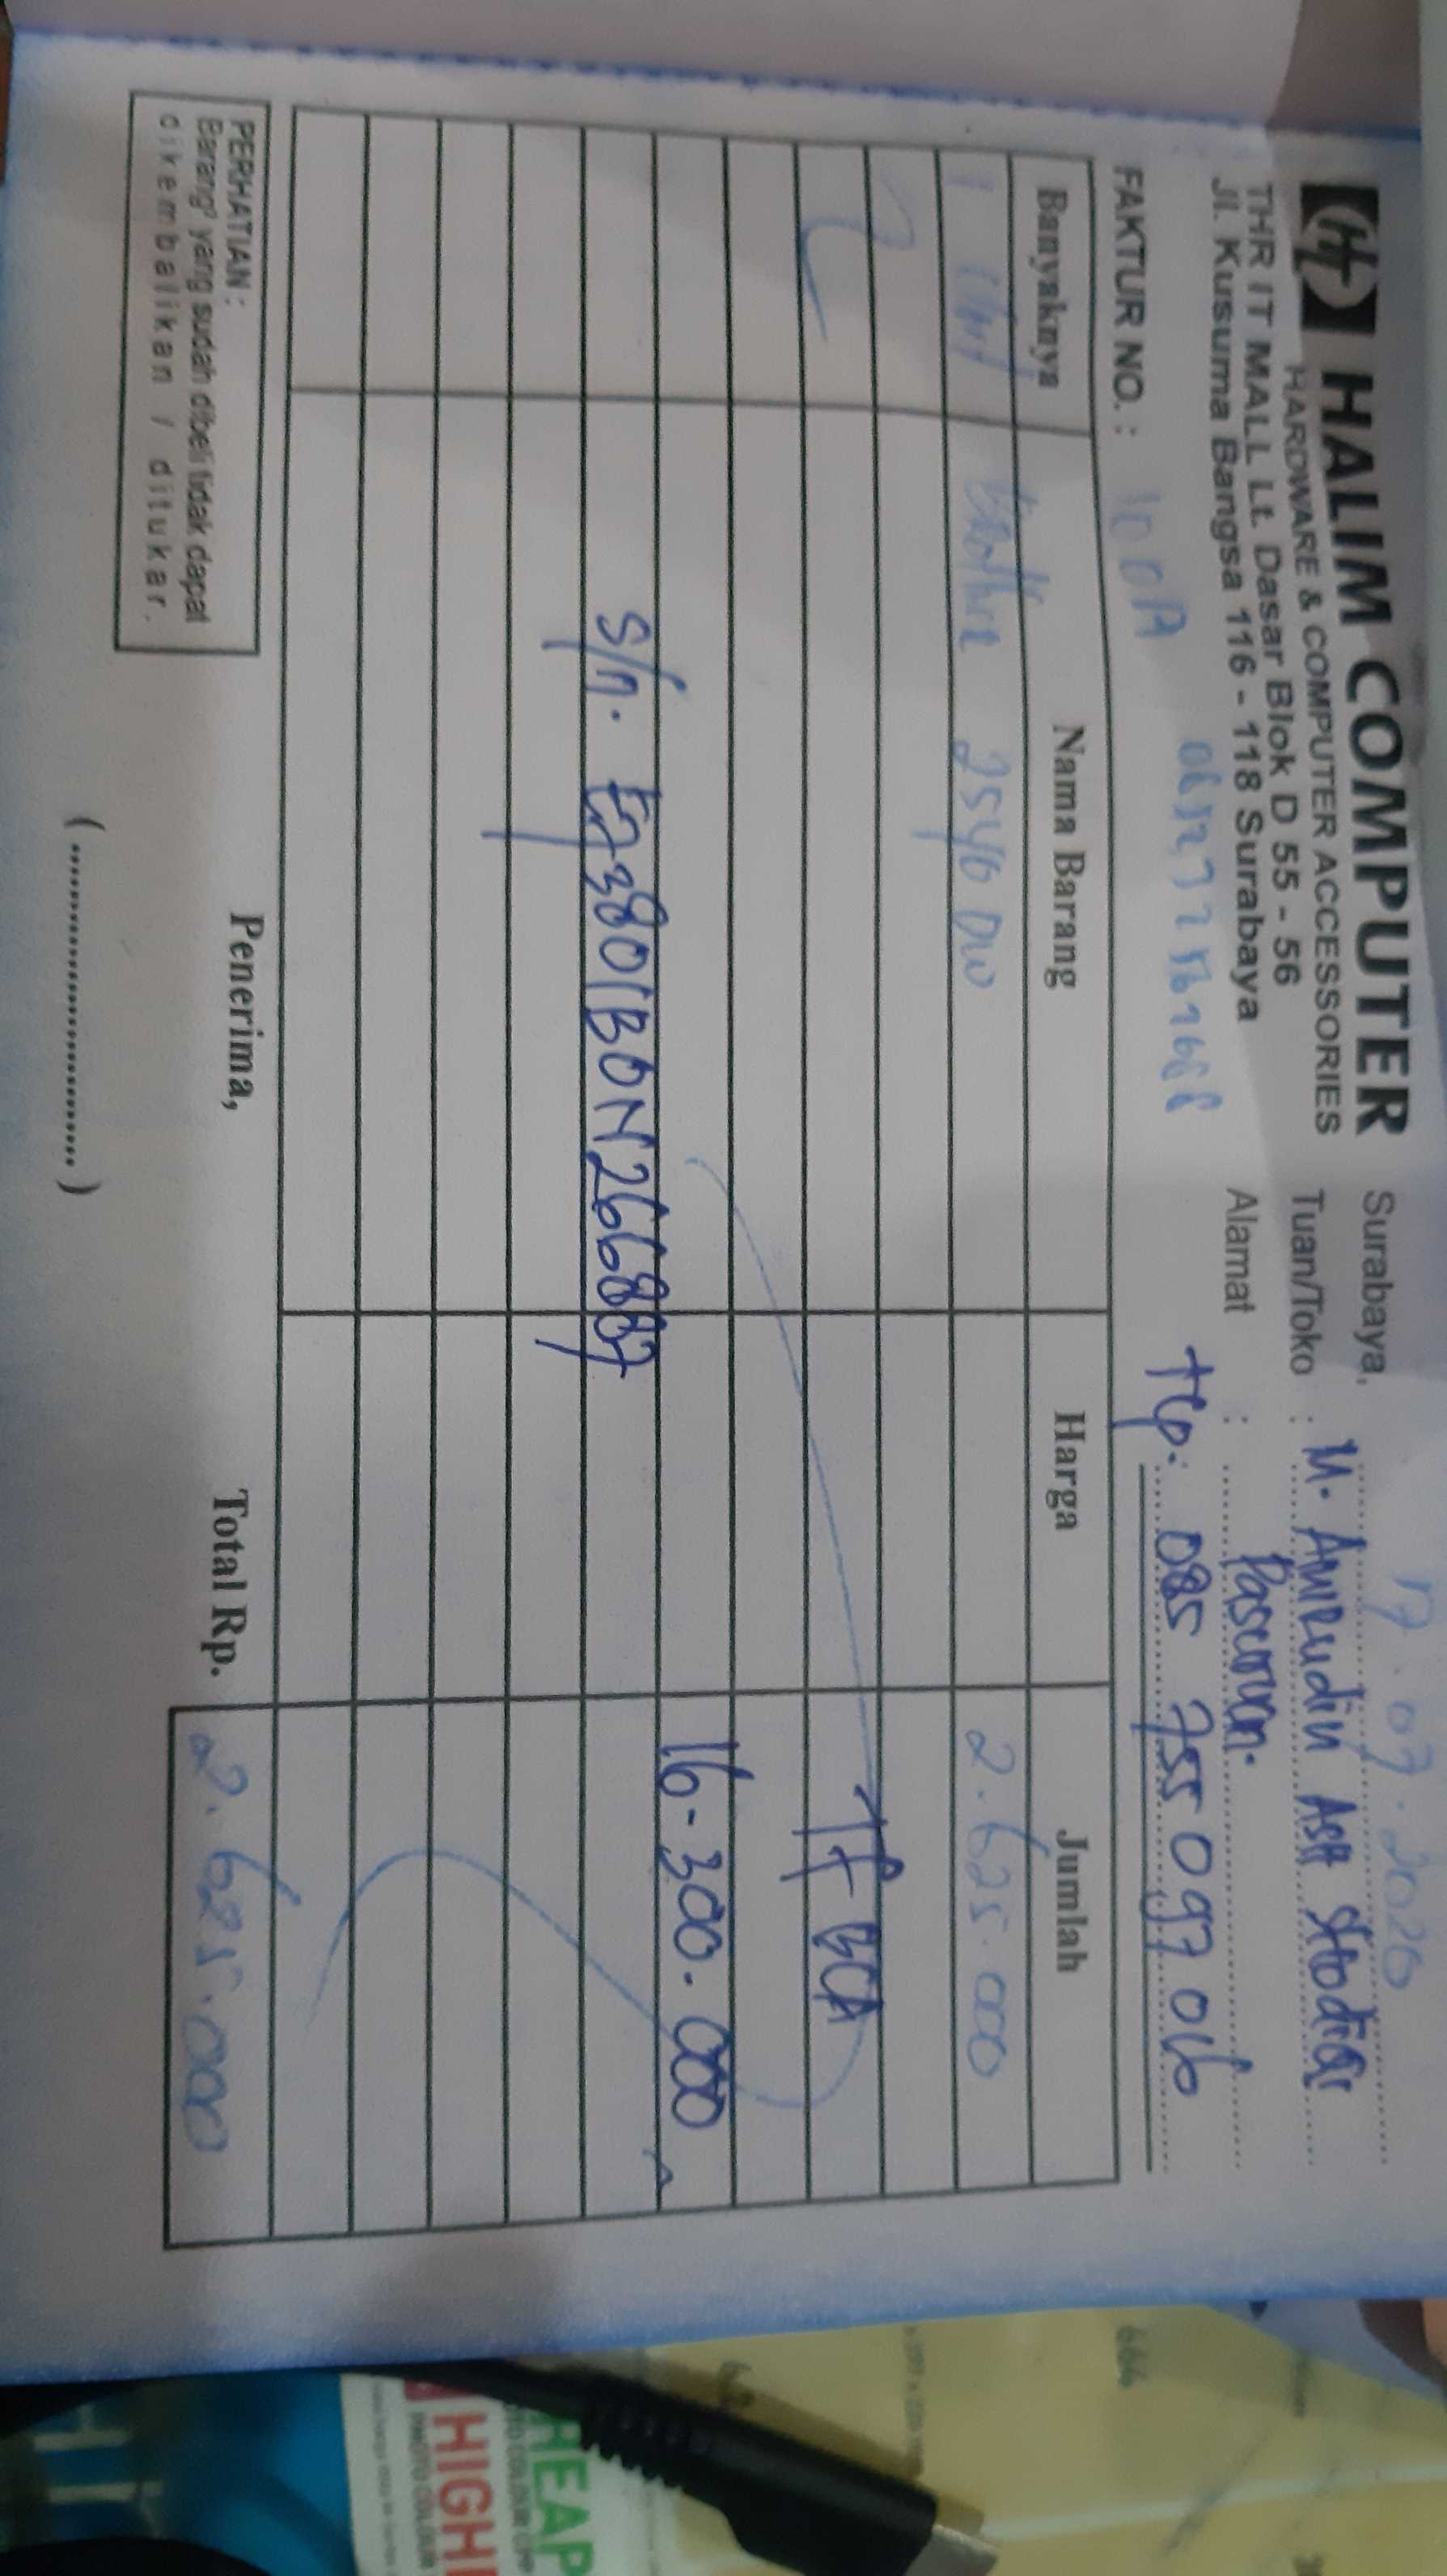 HALIM COMPUTER
HARDWARE & COMPUTER ACCESSORIES
THR IT MALL Lt. Dasar Blok D 55 - 56
Jl. Kusuma Bangsa 116 - 118 Surabaya
Surabaya, 17 . 07 . 2020
Tuan/Toko : M. Amirudin Ash Shodiq
Alamat : Pasuruan.
Tlp. 085 755 097 016
FAKTUR NO. :
Banyaknya Nama Barang Harga Jumlah
1 2540 DW 2.625.000
TF BCA
16.300.000
S/n. E73801B0N266887
PERHATIAN :
Barang² yang sudah dibeli tidak dapat
dikembalikan / ditukar.
Penerima,
(........................)
Total Rp. 2.625.000
HEAP
HIGH
PHOTO COLOUR